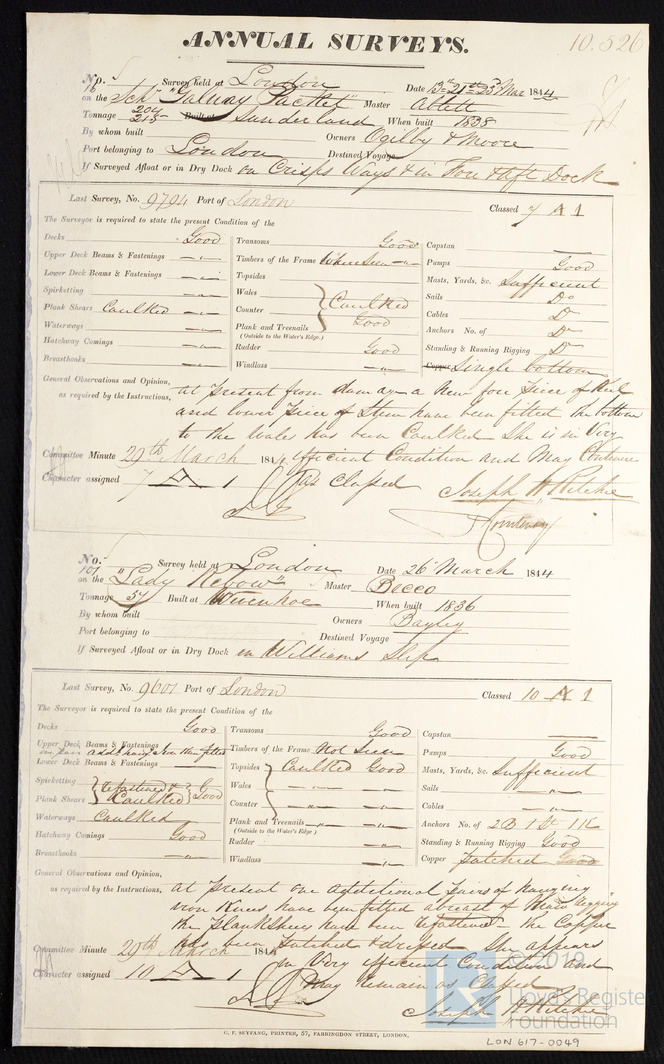 ANNUAL SURVEYS.
10.526
No. Survey held at London Date 13th 21st 23d Mar 1844
16 on the Schr "Galway Packet" Master Abett
Tonnage 204 215 Built at Sunderland When built 1838
By whom built Owners Ogilby & Moore
Port belonging to London Destined Voyage
If Surveyed Afloat or in Dry Dock on Crisps Ways & in Fore & Aft Dock
Last Survey, No. 9794 Port of London Classed 7 A 1
The Surveyor is required to state the present Condition of the
Decks Good
Upper Deck Beams & Fastenings
Lower Deck Beams & Fastenings
Spirketting
Plank Shears Caulked
Waterways
Hatchway Comings
Breasthooks
Transoms Good
Timbers of the Frame Where seen
Topsides
Wales
Counter Caulked
Plank and Treenails Good
(Outside to the Water's Edge.)
Rudder Good
Windlass
Capstan
Pumps Good
Masts, Yards, &c. Sufficient
Sails Do
Cables Do
Anchors No. of Do
Standing & Running Rigging Do
Copper Single bottom
General Observations and Opinion, as required by the Instructions,
At present from damage a New fore piece of Keel
and lower piece of Stem have been fitted the bottom
to the Wales has been Caulked She is in Very
efficient Condition and May Continue
as Classed Joseph H Ritchie
Committee Minute 29th March 1844
Character assigned 7 A 1
Courtenay
No. Survey held at London Date 26 March 1844
107 on the "Lady Rebow" Master Bacco
Tonnage 57 Built at Wivenhoe When built 1836
By whom built Owners Bayley
Port belonging to Destined Voyage
If Surveyed Afloat or in Dry Dock in Williams Slip
Last Survey, No. 9601 Port of London Classed 10 A 1
The Surveyor is required to state the present Condition of the
Decks Good
Upper Deck Beams & Fastenings
one pair addl hang iron knees fitted
Lower Deck Beams & Fastenings
Spirketting Refastened &
Plank Shears Caulked Good
Waterways Caulked
Hatchway Comings Good
Breasthooks
Transoms Good
Timbers of the Frame Not Seen
Topsides Caulked Good
Wales
Counter
Plank and Treenails
(Outside to the Water's Edge.)
Rudder
Windlass
Capstan
Pumps Good
Masts, Yards, &c. Sufficient
Sails
Cables
Anchors No. of 2B 1 St 1 K
Standing & Running Rigging Good
Copper Patched Good
General Observations and Opinion, as required by the Instructions,
At present one additional pairs of hanging
iron Knees have been fitted abreast of Main Rigging
the Planksheer have been refastened - the Copper
has been Patched & dressed She appears
in Very efficient Condition and
May Remain as Classed
Joseph H Ritchie
Committee Minute 29th March 1844
Character assigned 10 A 1
C. F. SEYFANG, PRINTER, 57, FARRINGDON STREET, LONDON.
© 2019
Lloyd's Register
Foundation
LON 617-0049